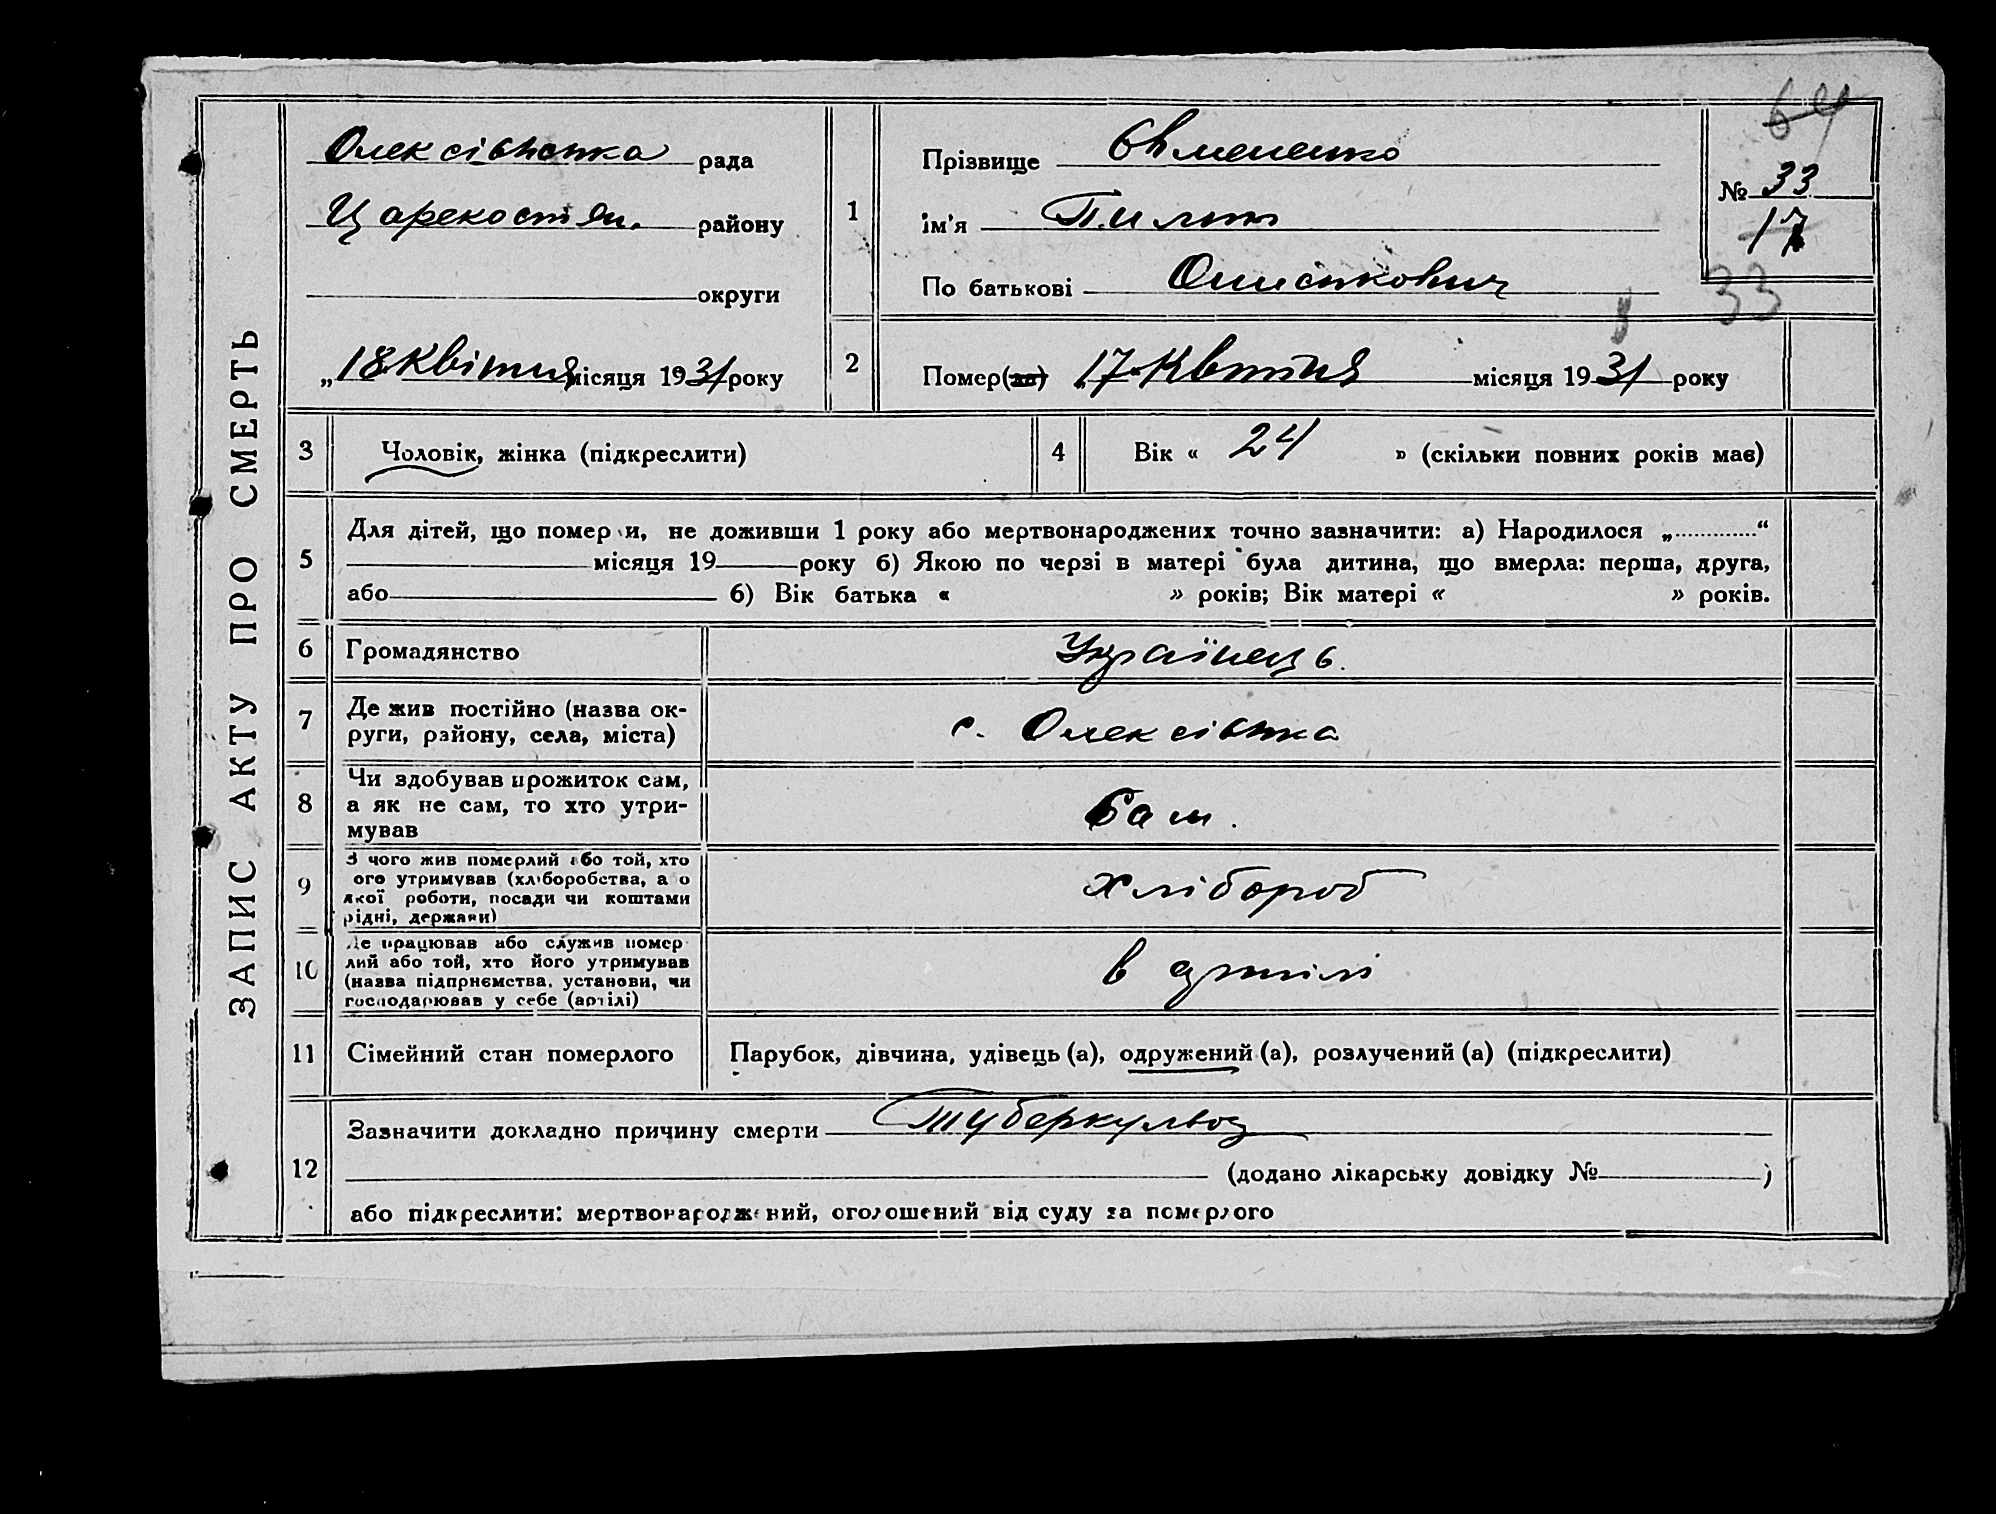 ЗАПИС АКТУ ПРО СМЕРТЬ
Олексівська рада
Царекостян. району
округи
„18 квітня місяця 1931 року
1
Прізвище
ім'я Пилип
По батькові
64
№ 33
17
33
2
Помер(ла) 17 Квітня місяця 1931 року
3 Чоловік, жінка (підкреслити)
4 Вік « 24 » (скільки повних років має)
5
Для дітей, що помер и, не доживши 1 року або мертвонароджених точно зазначити: а) Народилося „.............“
місяця 19 року б) Якою по черзі в матері була дитина, що вмерла: перша, друга,
або б) Вік батька « » років; Вік матері « » років.
6 Громадянство Українець.
7 Де жив постійно (назва ок-
руги, району, села, міста)
с. Олексівка
8 Чи здобував прожиток сам,
а як не сам, то хто утри-
мував
Сам.
9 З чого жив померлий або той, хто
ого утримував (хліборобства, а о
якої роботи, посади чи коштами
рідні, держави)
хлібороб
10 Де працював або служив помер
лий або той, хто його утримував
(назва підприємства, установи, чи
господарював у себе (артілі)
в артілі
11 Сімейний стан померлого Парубок, дівчина, удівець (а), одружений (а), розлучений (а) (підкреслити)
12
Зазначити докладно причину смерти Туберкульоз
(додано лікарську довідку № )
або підкреслити: мертвонароджений, оголошений від суду за померлого